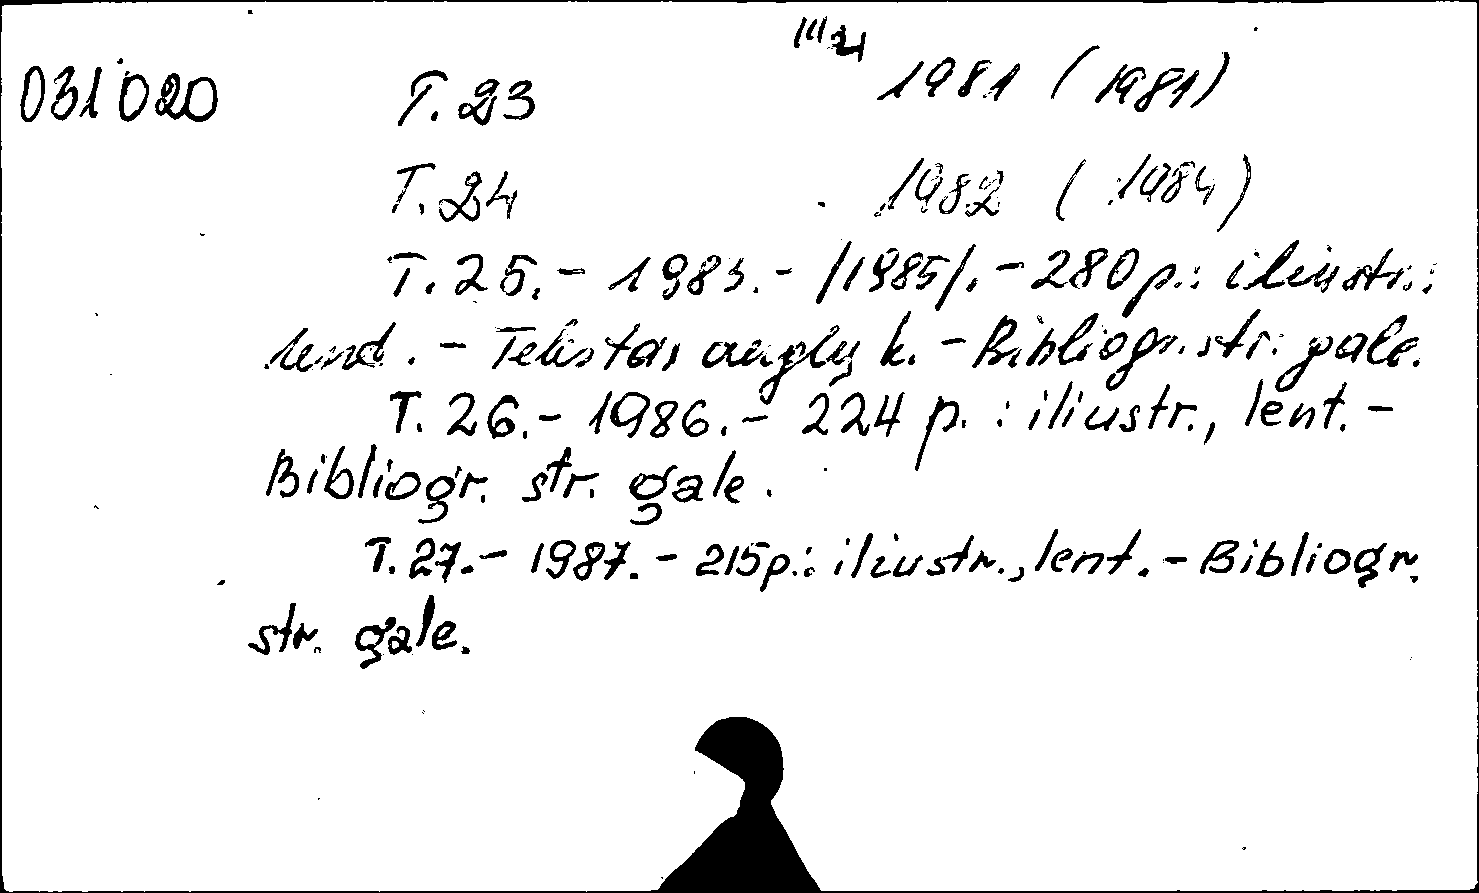 031020 T.23 1981 (1981)
T.24 1982 (1984)
T.25.- 1983.- /1985/.- 280 p.: iliustr.;
lend. - Tekstas anglų k. - Bibliogr. str. gale.
T. 26.- 1986.- 224 p. : iliustr., lent.-
Bibliogr. str. gale.
T.27.- 1987.- 215p.: iliustr., lent.- Bibliogr.
str. gale.